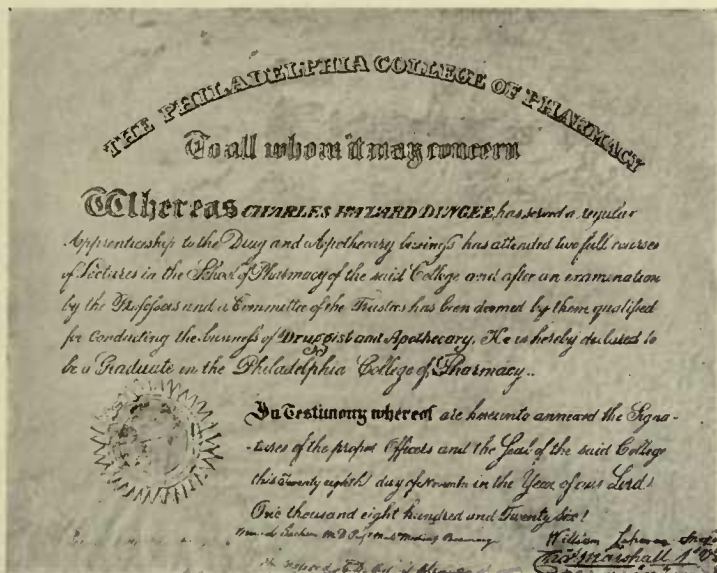 THE PHILADELPHIA COLLEGE OF PHARMACY
To all whom it may concern
Whereas CHARLES DINGEE, has served a regular
Apprenticeship to the Drug and Apothecary business has attended two full courses
of Lectures in the School of Pharmacy of the said College and after an examination
by the Professors and a Committee of the Trustees has been deemed by them qualified
for conducting the business of Druggist and Apothecary. He is hereby declared to
be a Graduate in the Philadelphia College of Pharmacy..
In Testimony whereof are hereunto annexed the Signa-
-tures of the proper Officers and the Seal of the said College
this Twenty eighth day of in the Year of our Lord
One thousand eight hundred and Twenty six
M D
William
Marshall